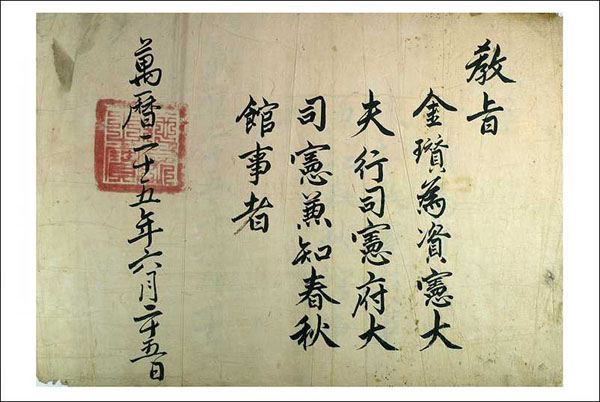 教旨
金瓚為資憲大
夫行司憲府大
司憲兼知春秋
館事者
萬曆二十五年六月二十五日